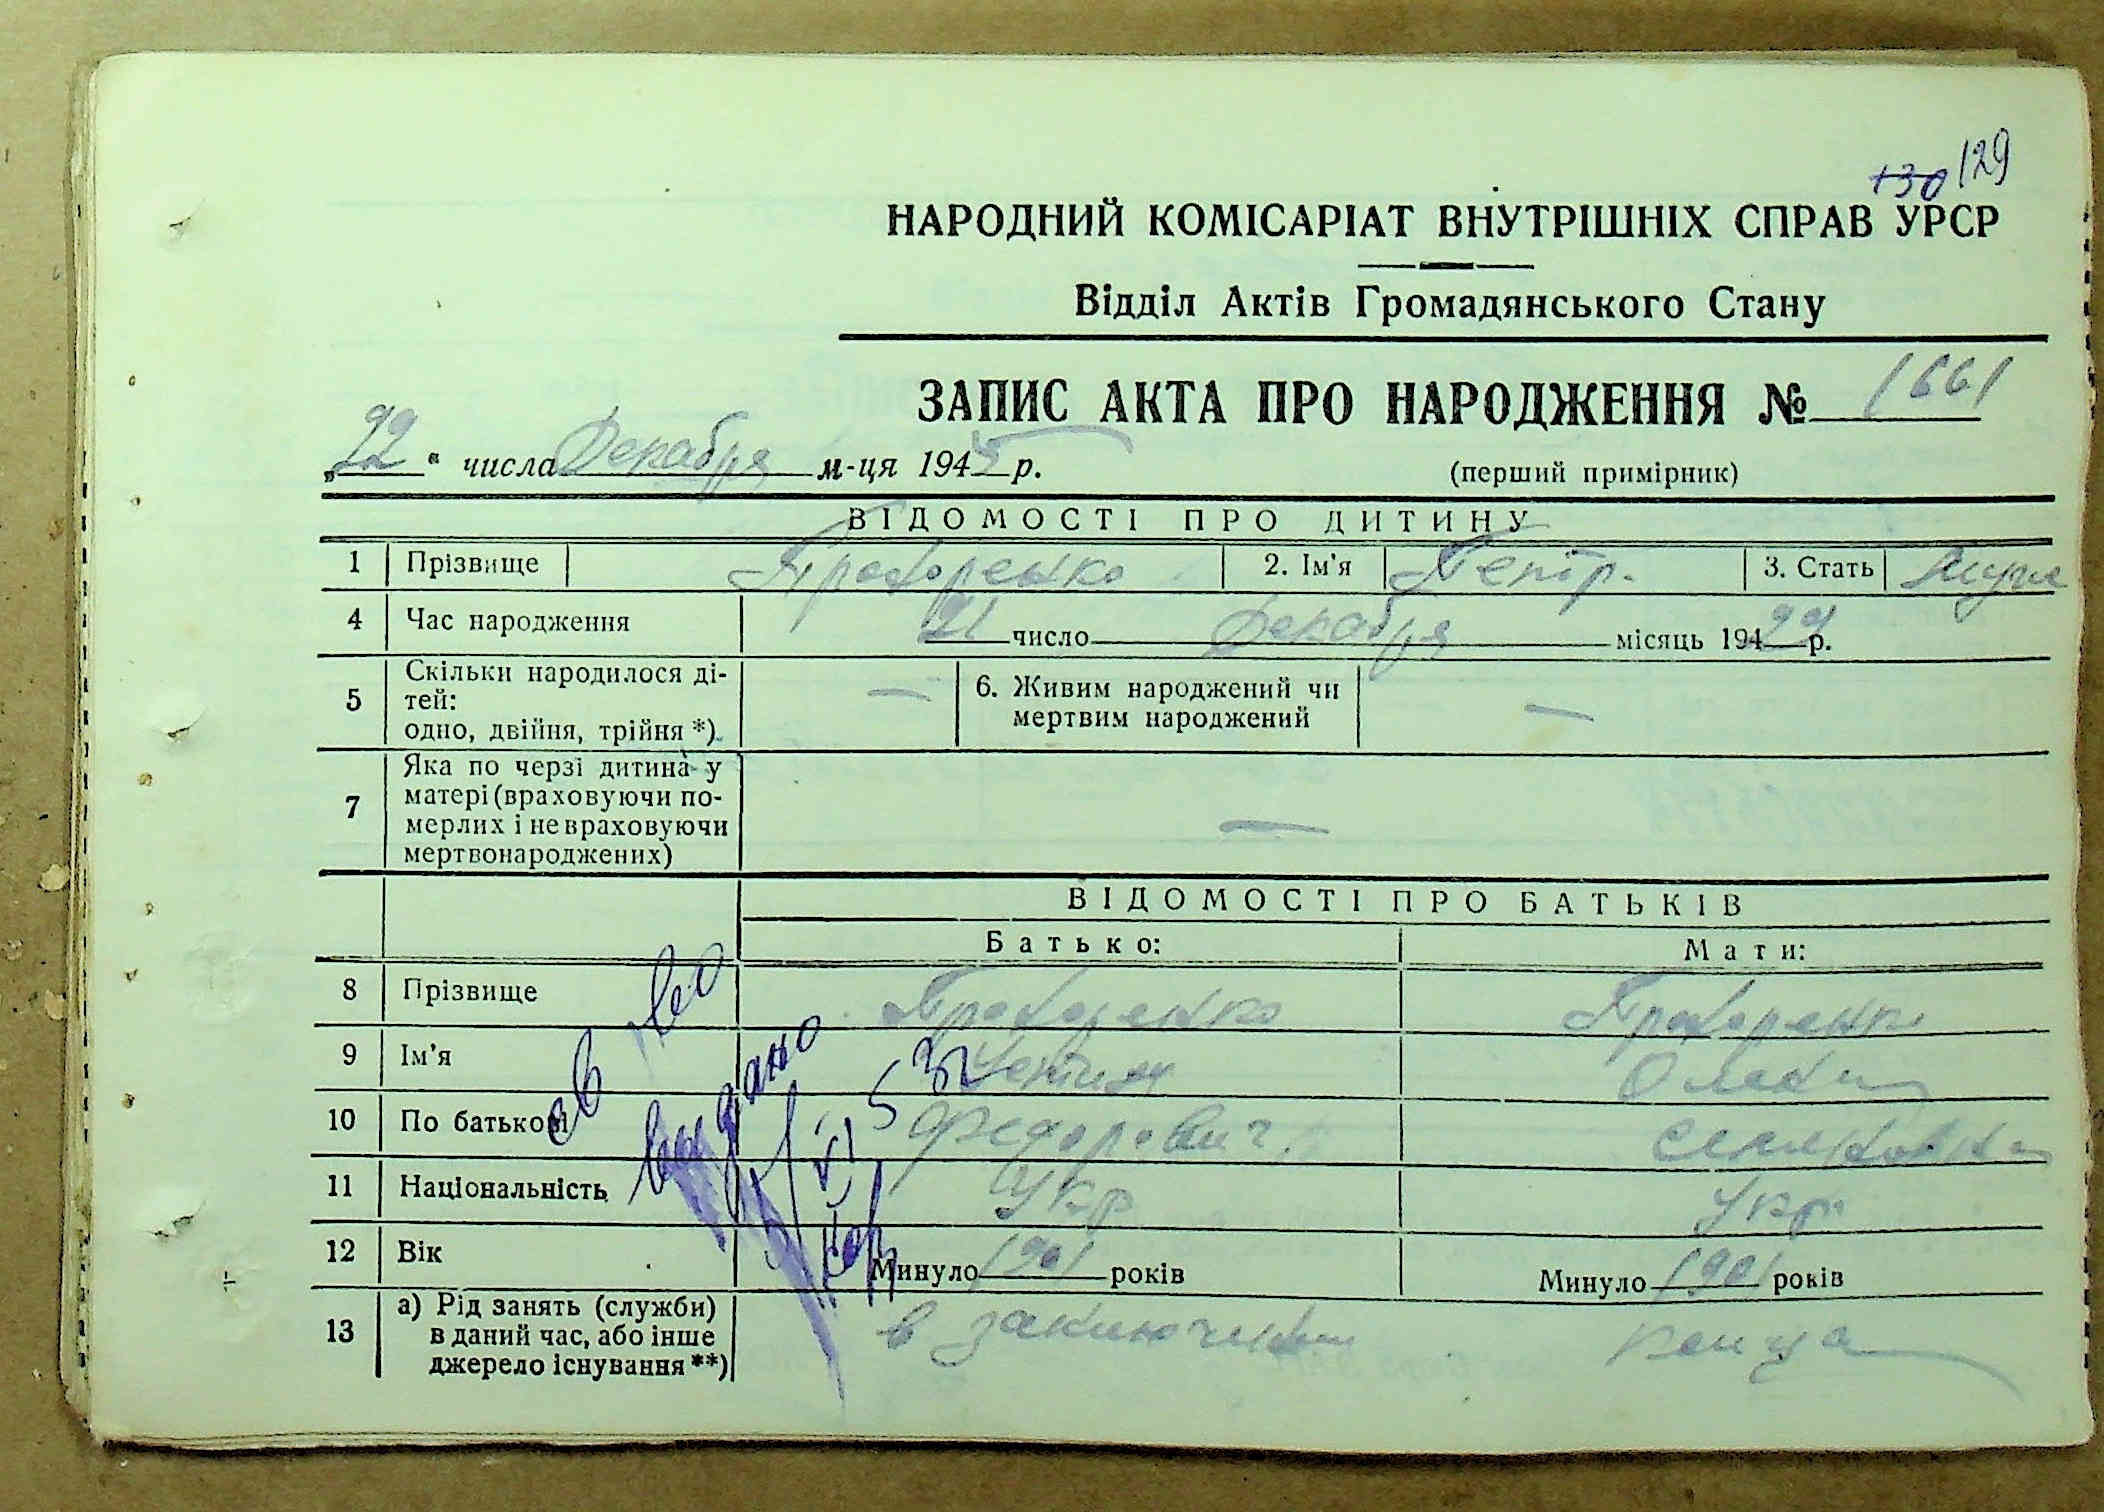 130 129
НАРОДНИЙ КОМІСАРІАТ ВНУТРІШНІХ СПРАВ УРСР
Відділ Актів Громадянського Стану
ЗАПИС АКТА ПРО НАРОДЖЕННЯ № 1661
„22“ числа Декабря м-ця 1945 р. (перший примірник)
ВІДОМОСТІ ПРО ДИТИНУ
1 Прізвище Прохоренко 2. Ім'я Петр. 3. Стать Муж
4 Час народження 21 число Декабря місяць 194 29 р.
5 Скільки народилося ді-
тей:
одно, двійня, трійня *) — 6. Живим народжений чи
мертвим народжений —
7 Яка по черзі дитина у
матері (враховуючи по-
мерлих і не враховуючи
мертвонароджених) —
ВІДОМОСТІ ПРО БАТЬКІВ
Батько: Мати:
8 Прізвище Прохоренко Прохоренко
9 Ім'я
10 По батькові Федорович.
11 Національність Укр Укр.
12 Вік Минуло 1901 років Минуло 1901 років
13 а) Рід занять (служби)
в даний час, або інше
джерело існування **) в
видано